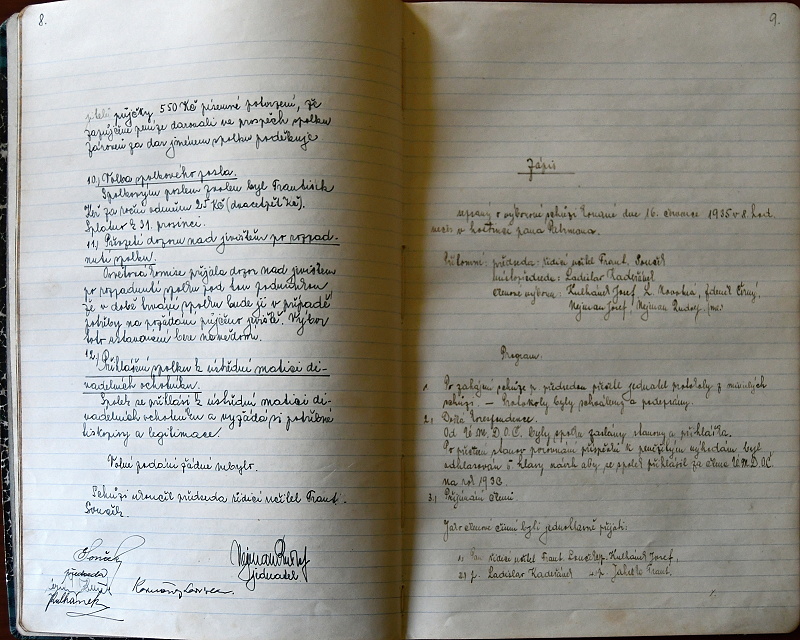 8.
půjčky 550 Kč písemné potvrzení, že
zapůjčené peníze darovali ve prospěch spolku
zároveň za dar jménem spolku poděkuje
10.) Volba spolkového posla.
Spolkovým poslem zvolen byl František
za roční odměnu 25 Kč (dvacetpět Kč).
Splatné 31. prosinci.
11.) Převzetí dozoru nad jevištěm po rozpad-
nutí spolku.
Osvětová komise přijala dozor nad jevištěm
po rozpadnutí spolku pod tou podmínkou
že v době trvání spolku bude jí v případě
potřeby na požádání půjčeno jeviště. Výbor
toto ustanovení bere na vědomí.
12.) Přihlášení spolku k ústřední matici di-
vadelních ochotníků.
Spolek se přihlásí k ústřední matici di-
vadelních ochotníků a vyžádá si potřebné
tiskopisy a legitimace.
Volné podání žádné nebylo.
Schůzi ukončil předseda řídící učitel Frant.
Souček.
Souček
předseda
Nejman Rudolf
jednatel
Kulhánek
9.
Zápis
o výborové schůzi konané dne 16. července 1935 v 8. hod.
več. v hostinci pana
Přítomní: předseda: řídící učitel Frant. Souček
místopředseda: Ladislav Kadeřábek
členové výboru: Kulhánek Josef, K. Novotná, Černý,
Nejman Josef, Nejman Rudolf.
Program:
1. Po zahájení schůze p. předsedou přečetl jednatel protokoly z minulých
schůzí. — Protokoly byly schváleny a podepsány.
2.) Došlá korespondence.
Od Ú.M.D.O.Č. byly spolku zaslány stanovy a přihláška.
Po přečtení stanov porovnání příspěvků k peněžitým výhodám byl
odhlasován návrh aby se spolek přihlásil za člena Ú.M.D.O.Č.
na rok 1936.
3.) Přijímání členů
Jako členové činní byli jednohlasně přijati:
1) Pan řídící učitel Frant. Souček, p. Kulhánek Josef,
2) p. Ladislav Kadeřábek Frant.